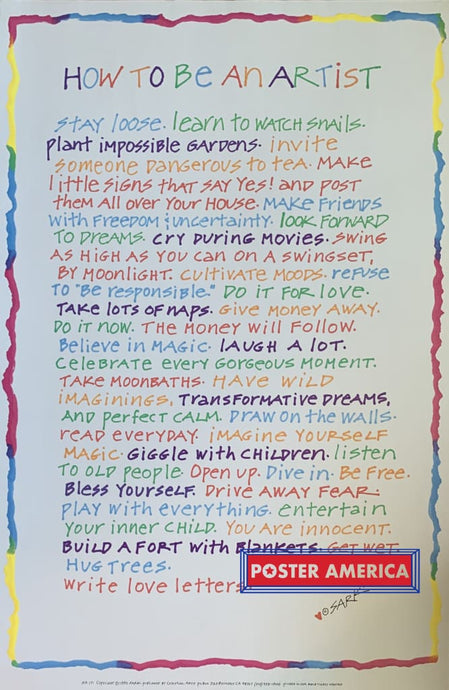 HOW TO BE AN ARTIST
STAY LOOSE. LEARN TO WATCH SNAILS.
PLANT IMPOSSIBLE GARDENS. INVITE
SOMEONE DANGEROUS TO TEA. MAKE
LITTLE SIGNS THAT SAY YES! AND POST
THEM ALL OVER YOUR HOUSE. MAKE FRIENDS
WITH FREEDOM & UNCERTAINTY. LOOK FORWARD
TO DREAMS. CRY DURING MOVIES. SWING
AS HIGH AS YOU CAN ON A SWINGSET,
BY MOONLIGHT. CULTIVATE MOODS. REFUSE
TO "BE RESPONSIBLE." DO IT FOR LOVE.
TAKE LOTS OF NAPS. GIVE MONEY AWAY.
DO IT NOW. THE MONEY WILL FOLLOW.
BELIEVE IN MAGIC. LAUGH A LOT.
CELEBRATE EVERY GORGEOUS MOMENT.
TAKE MOONBATHS. HAVE WILD
IMAGININGS, TRANSFORMATIVE DREAMS,
AND PERFECT CALM. DRAW ON THE WALLS.
READ EVERYDAY. IMAGINE YOURSELF
MAGIC. GIGGLE WITH CHILDREN. LISTEN
TO OLD PEOPLE. OPEN UP. DIVE IN. BE FREE.
BLESS YOURSELF. DRIVE AWAY FEAR.
PLAY WITH EVERYTHING. ENTERTAIN
YOUR INNER CHILD. YOU ARE INNOCENT.
BUILD A FORT WITH BLANKETS. GET WET.
HUG TREES.
WRITE LOVE LETTERS.
POSTER AMERICA
©SARK